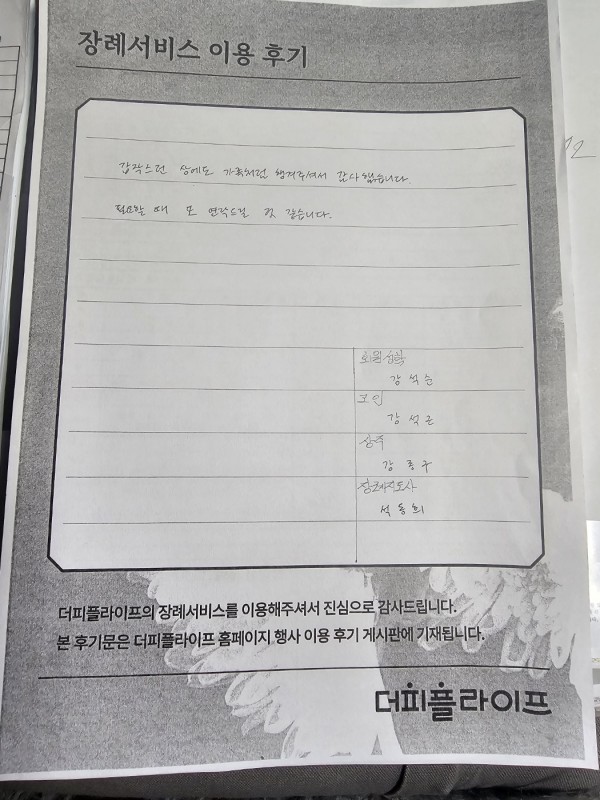 장례서비스 이용 후기
갑작스런 상에도 가족처럼 챙겨주셔서 감사했습니다.
필요할 때 또 연락드릴 것 같습니다.
회원성함
강석순
고인
강석근
상주
강종구
장례지도사
석동희
더피플라이프의 장례서비스를 이용해주셔서 진심으로 감사드립니다.
본 후기문은 더피플라이프 홈페이지 행사 이용 후기 게시판에 기재됩니다.
더피플라이프